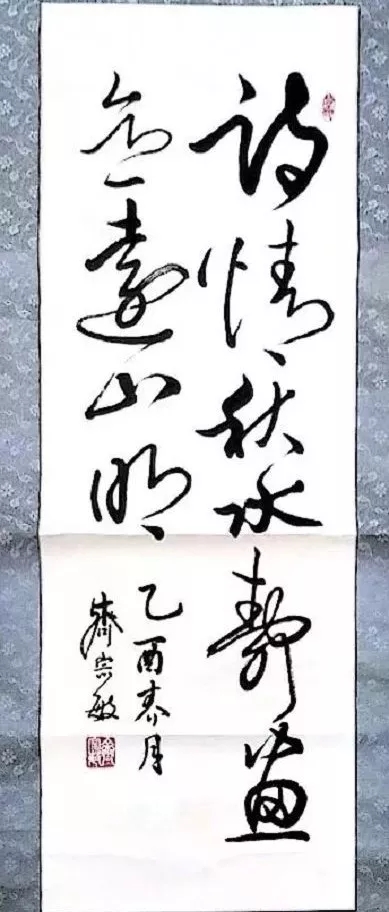 詩情秋水靜畫
意遠山明
乙酉春月
齊宗敏